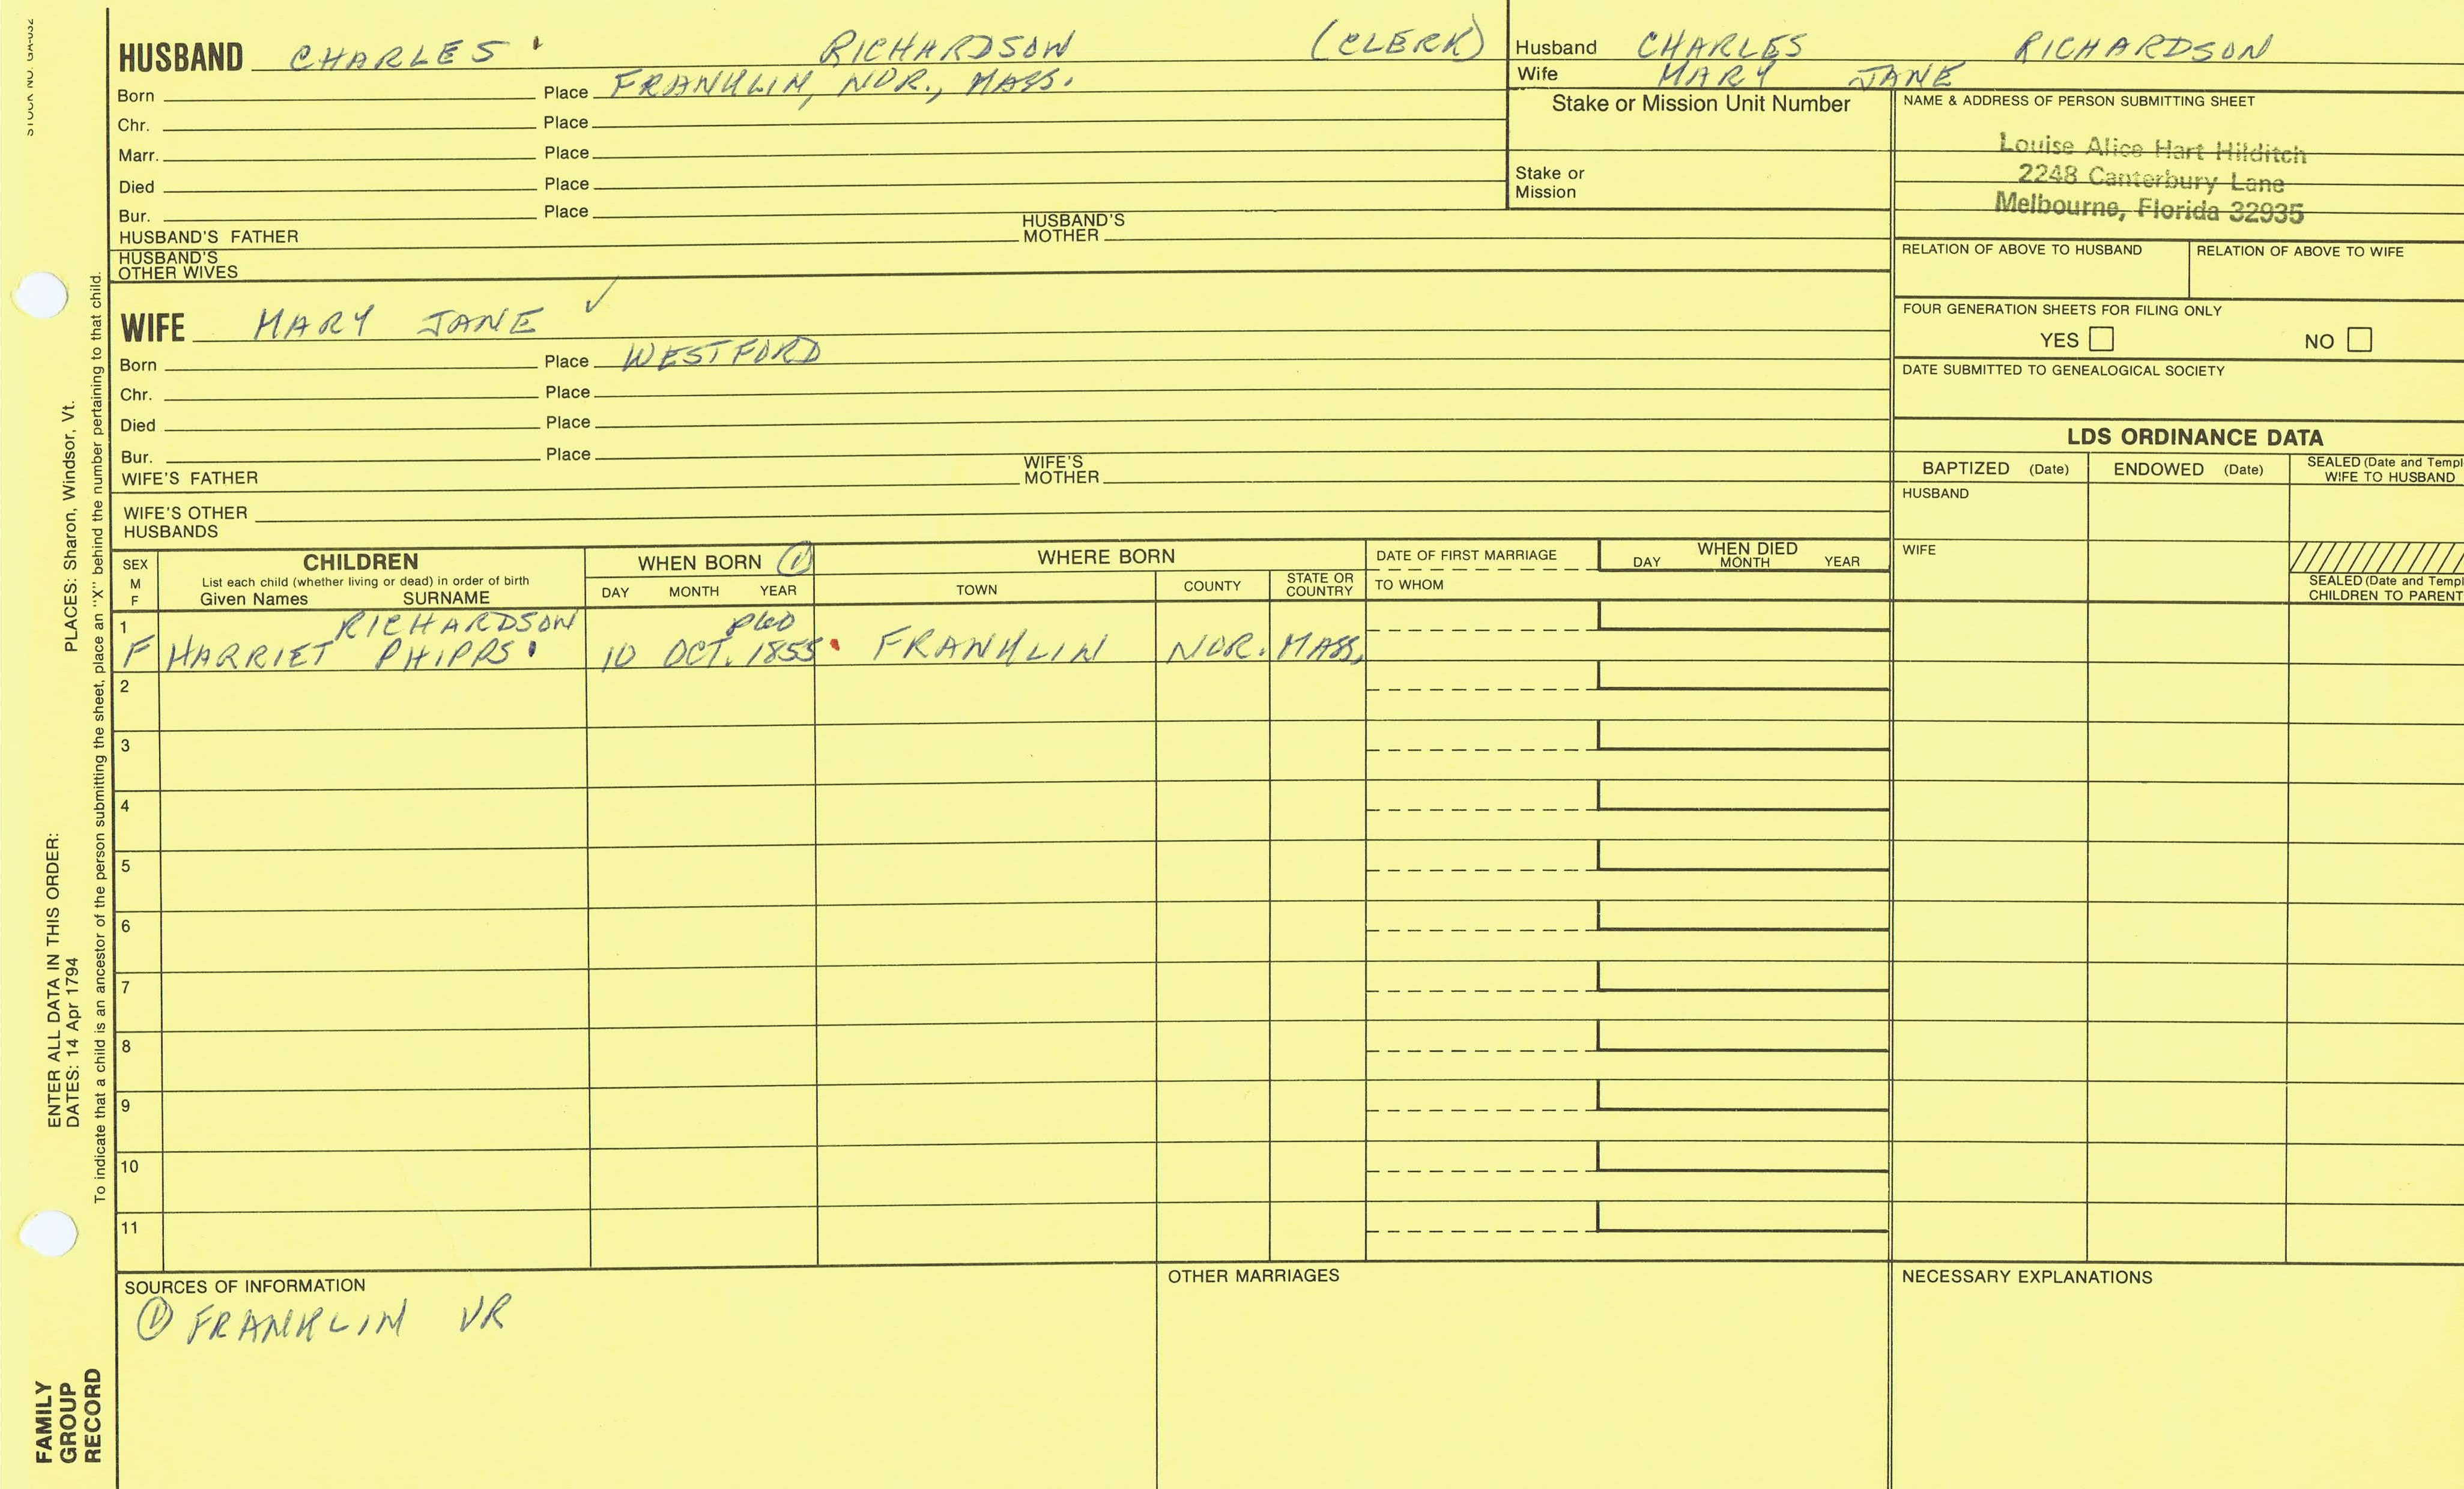 STOCK NO. GA-032
HUSBAND CHARLES RICHARDSON (CLERK)
Born Place FRANKLIN, NOR., MASS.
Chr. Place
Marr. Place
Died Place
Bur. Place
HUSBAND'S FATHER HUSBAND'S MOTHER
HUSBAND'S OTHER WIVES
WIFE MARY JANE ✓
Born Place WESTFORD
Chr. Place
Died Place
Bur. Place
WIFE'S FATHER WIFE'S MOTHER
WIFE'S OTHER HUSBANDS
Husband CHARLES RICHARDSON
Wife MARY JANE
Stake or Mission Unit Number
Stake or
Mission
NAME & ADDRESS OF PERSON SUBMITTING SHEET
Louise Alice Hart Hilditch
2248 Canterbury Lane
Melbourne, Florida 32935
RELATION OF ABOVE TO HUSBAND RELATION OF ABOVE TO WIFE
FOUR GENERATION SHEETS FOR FILING ONLY
YES NO
DATE SUBMITTED TO GENEALOGICAL SOCIETY
LDS ORDINANCE DATA
BAPTIZED (Date) ENDOWED (Date) SEALED (Date and Templ
WIFE TO HUSBAND
HUSBAND
WIFE
SEALED (Date and Templ
CHILDREN TO PARENT
SEX
M
F
CHILDREN
List each child (whether living or dead) in order of birth
Given Names SURNAME
WHEN BORN ①
DAY MONTH YEAR
WHERE BORN
TOWN COUNTY STATE OR COUNTRY
DATE OF FIRST MARRIAGE
TO WHOM
WHEN DIED
DAY MONTH YEAR
1 RICHARDSON
F HARRIET PHIPPS 10 OCT. 1855 FRANKLIN NOR. MASS.
2
3
4
5
6
7
8
9
10
11
SOURCES OF INFORMATION
① FRANKLIN VR
OTHER MARRIAGES
NECESSARY EXPLANATIONS
ENTER ALL DATA IN THIS ORDER:
DATES: 14 Apr 1794 PLACES: Sharon, Windsor, Vt.
To indicate that a child is an ancestor of the person submitting the sheet, place an "X" behind the number pertaining to that child.
FAMILY
GROUP
RECORD